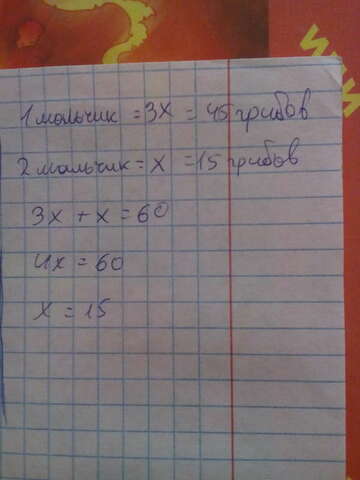 1 мальчик = 3x = 45 грибов
2 мальчик = x = 15 грибов
3x + x = 60
4x = 60
x = 15